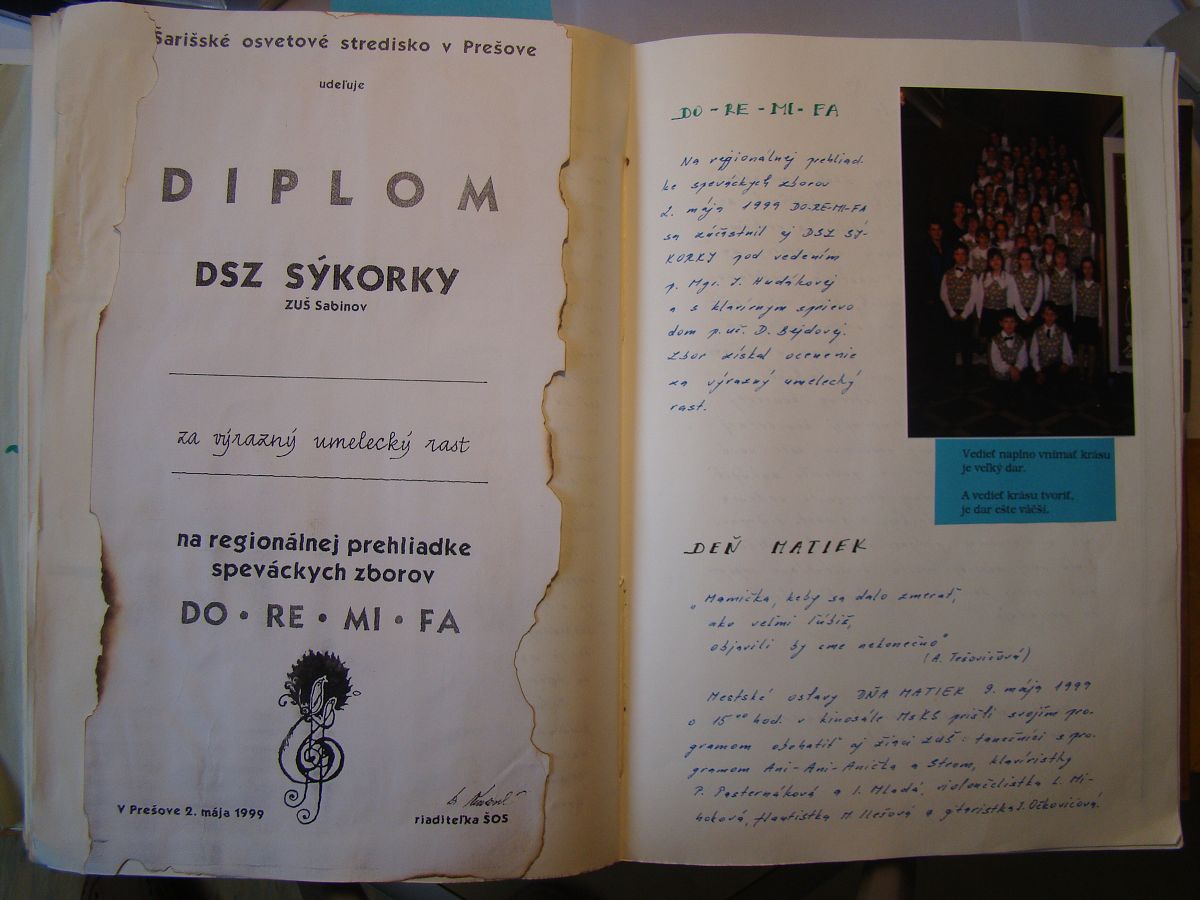 Šarišské osvetové stredisko v Prešove
udeľuje
DIPLOM
DSZ SÝKORKY
ZUŠ Sabinov
za výrazný umelecký rast
na regionálnej prehliadke
speváckych zborov
DO • RE • MI • FA
V Prešove 2. mája 1999
riaditeľka ŠOS
DO - RE - MI - FA
Na regionálnej prehliad-
ke speváckych zborov
2. mája 1999 DO-RE-MI-FA
sa zúčastnil aj DSZ SÝ-
KORKY pod vedením
p. Mgr. J. Hudákovej
a s klavírnym sprievo
dom p. uč. D. Bejdovej.
Zbor získal ocenenie
za výrazný umelecký
rast.
Vedieť naplno vnímať krásu
je veľký dar.
A vedieť krásu tvoriť,
je dar ešte väčší.
DEŇ MATIEK
„Mamička, keby sa dalo zmerať,
ako veľmi ľúbiš,
objavili by sme nekonečno"
(A. Tešovičová)
Mestské oslavy DŇA MATIEK 9. mája 1999
o 15⁰⁰ hod. v kinosále MsKS prišli svojím pro-
gramom obohatiť aj žiaci ZUŠ: tanečníci s pro-
gramom Ani-Ani-Anička a Strom, klaviristky
P. Pasternáková a I. Mladá, violončelistka L. Mi-
hoková, flautistka M. Ilešová a gitaristka J. Očkovičová.